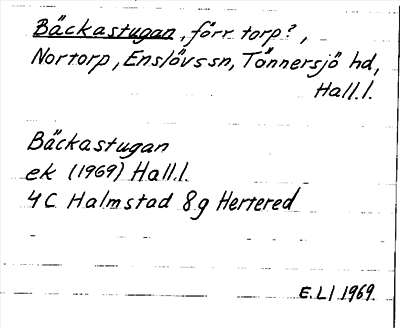 Bäckastugan, förr torp?,
Nortorp, Enslövs sn, Tönnersjö hd,
Hall.l.
Bäckastugan
ek (1969) Hall.l.
4C Halmstad 8g Hertered
E.LI 1969.